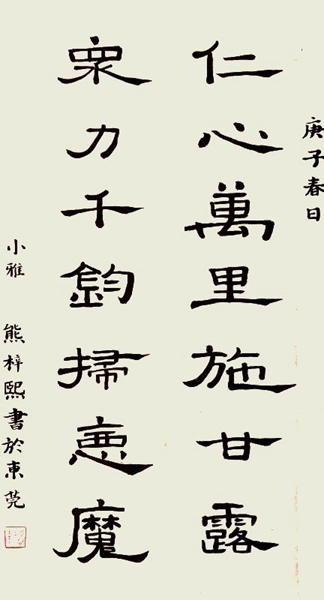 庚子春日
仁心萬里施甘露
眾力千鈞掃惡魔
小雅 熊梓熙書於東莞